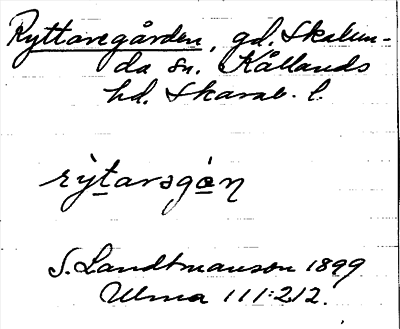 Ryttaregården, gd. Skalun-
da sn. Kållands
hd. Skarab. l.
rỳtarəgɑ̀ɳ
S. Landtmanson 1899
Ulma 111:212.